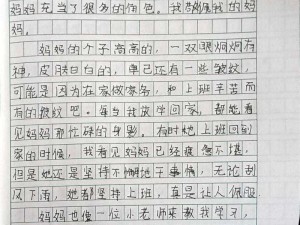 妈妈充当了很多的角色。我的妈
妈。
妈妈的个子高高的，一双眼炯炯有
神，皮肤白白的，单已还有一些皱纹，
可能是因为在家做家务，和上班辛苦而
有的皱纹吧。每当我放学回家，都能看
见妈妈那忙碌的身影。有时她上班回到
家的时候，我看见妈妈已经疲惫不堪，
但是她还是坚持不懈地干事情，无论刮
风下雨，她都坚持上班，真是让人佩服。
妈妈也像一位小老师来教我学习，